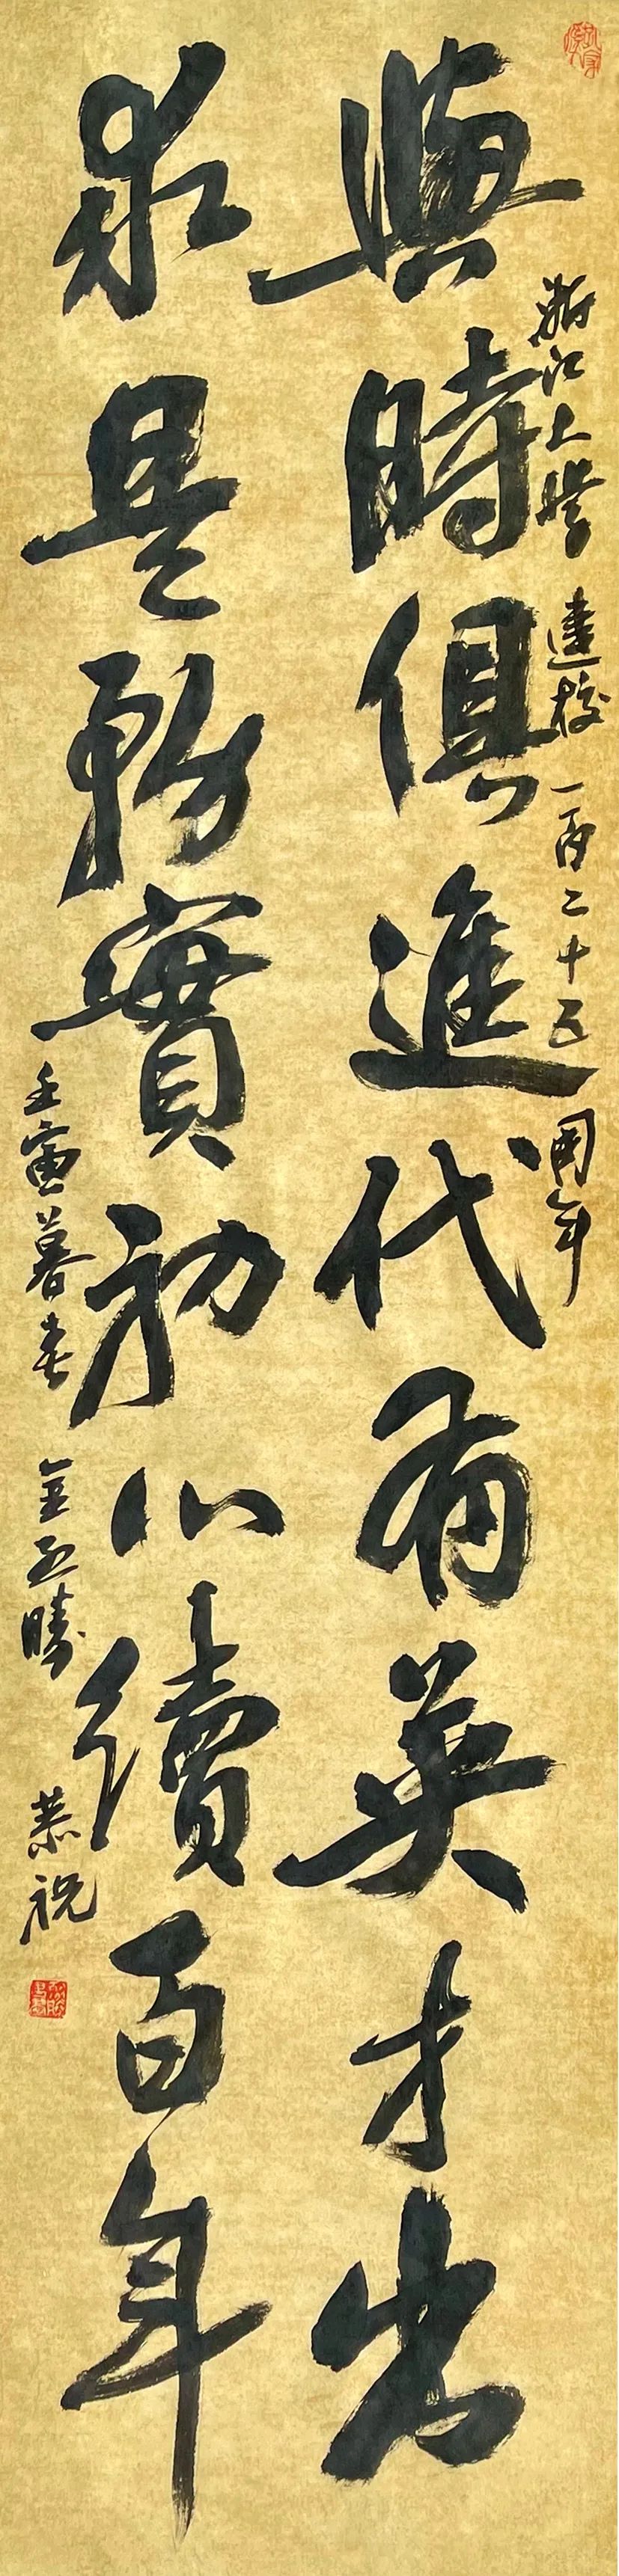 浙江大學 建校一百二十五周年
與時俱進代有英才出
求是務實初心續百年
壬寅暮春 金 恭祝